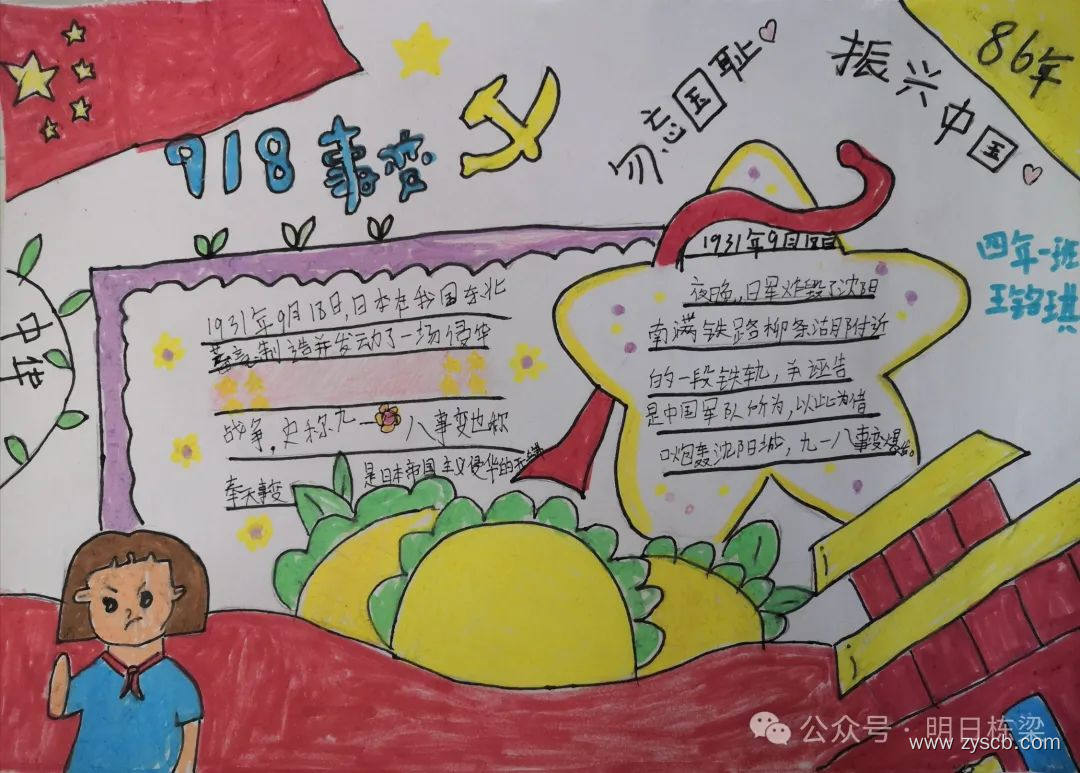 918事变
勿忘国耻
振兴中国
86年
四年一班
王铭琪
中华
1931年9月18日,日本在我国东北
蓄意制造并发动了一场侵华
战争,史称九一八事变也称
奉天事变
是日本帝国主义侵华的开端
1931年9月18日
夜晚,日军炸毁了沈阳
南满铁路柳条湖附近
的一段铁轨,并诬告
是中国军队所为,以此为借
口炮轰沈阳城,九一八事变爆发。
公众号·明日栋梁
www.zyscb.com